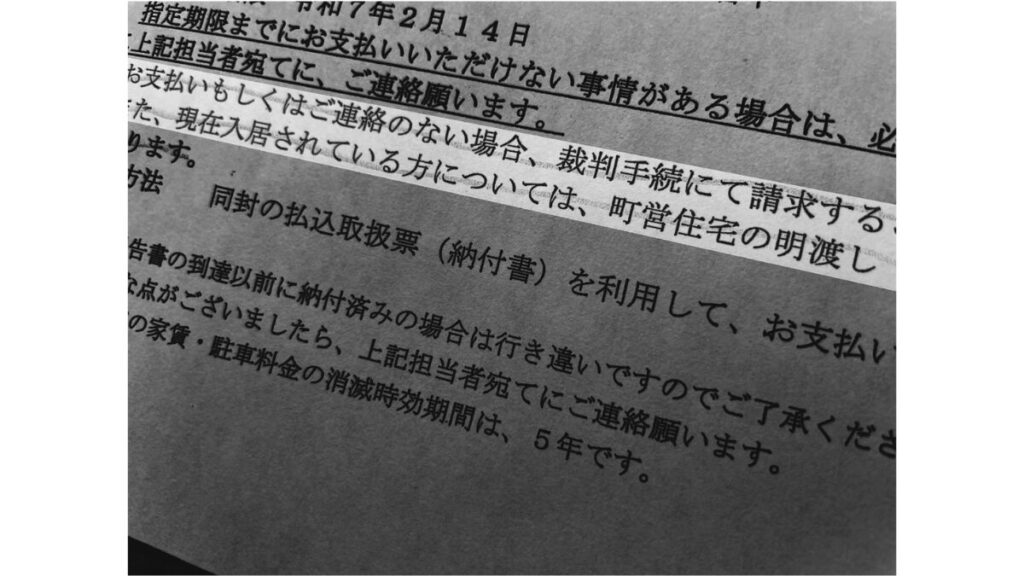 令和７年２月１４日
指定期限までにお支払いいただけない事情がある場合は、必
上記担当者宛てに、ご連絡願います。
お支払いもしくはご連絡のない場合、裁判手続にて請求する
た、現在入居されている方については、町営住宅の明渡し
ります。
方法　同封の払込取扱票（納付書）を利用して、お支払い
告書の到達以前に納付済みの場合は行き違いですのでご了承くださ
な点がございましたら、上記担当者宛てにご連絡願います。
の家賃・駐車料金の消滅時効期間は、５年です。